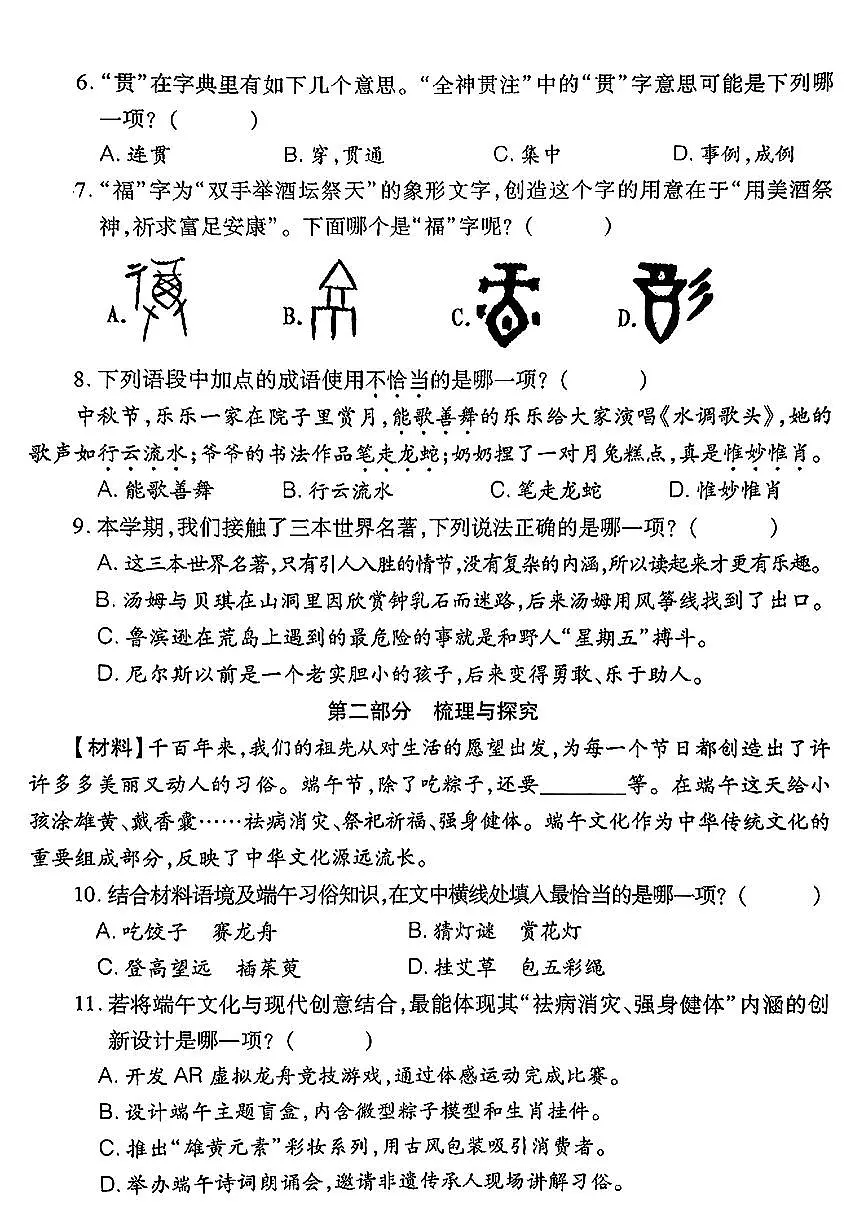 6. “贯”在字典里有如下几个意思。“全神贯注”中的“贯”字意思可能是下列哪
一项?(  )
A. 连贯 B. 穿,贯通 C. 集中 D. 事例,成例
7. “福”字为“双手举酒坛祭天”的象形文字,创造这个字的用意在于“用美酒祭
神,祈求富足安康”。下面哪个是“福”字呢?(  )
A. B. C. D.
8. 下列语段中加点的成语使用不恰当的是哪一项?(  )
中秋节,乐乐一家在院子里赏月,能歌善舞的乐乐给大家演唱《水调歌头》,她的
歌声如行云流水;爷爷的书法作品笔走龙蛇;奶奶捏了一对月兔糕点,真是惟妙惟肖。
A. 能歌善舞 B. 行云流水 C. 笔走龙蛇 D. 惟妙惟肖
9. 本学期,我们接触了三本世界名著,下列说法正确的是哪一项?(  )
A. 这三本世界名著,只有引人入胜的情节,没有复杂的内涵,所以读起来才更有乐趣。
B. 汤姆与贝琪在山洞里因欣赏钟乳石而迷路,后来汤姆用风筝线找到了出口。
C. 鲁滨逊在荒岛上遇到的最危险的事就是和野人“星期五”搏斗。
D. 尼尔斯以前是一个老实胆小的孩子,后来变得勇敢、乐于助人。
第二部分 梳理与探究
【材料】千百年来,我们的祖先从对生活的愿望出发,为每一个节日都创造出了许
许多多美丽又动人的习俗。端午节,除了吃粽子,还要________等。在端午这天给小
孩涂雄黄、戴香囊……祛病消灾、祭祀祈福、强身健体。端午文化作为中华传统文化的
重要组成部分,反映了中华文化源远流长。
10. 结合材料语境及端午习俗知识,在文中横线处填入最恰当的是哪一项?(  )
A. 吃饺子 赛龙舟 B. 猜灯谜 赏花灯
C. 登高望远 插茱萸 D. 挂艾草 包五彩绳
11. 若将端午文化与现代创意结合,最能体现其“祛病消灾、强身健体”内涵的创
新设计是哪一项?(  )
A. 开发 AR 虚拟龙舟竞技游戏,通过体感运动完成比赛。
B. 设计端午主题盲盒,内含微型粽子模型和生肖挂件。
C. 推出“雄黄元素”彩妆系列,用古风包装吸引消费者。
D. 举办端午诗词朗诵会,邀请非遗传承人现场讲解习俗。